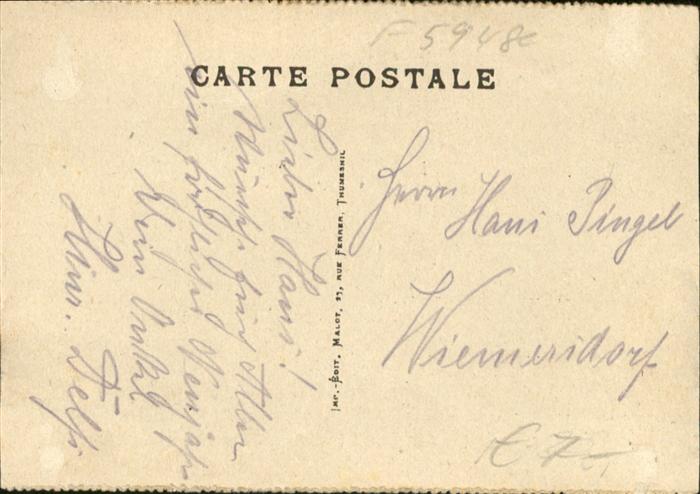 F 5948e
CARTE POSTALE
Lieber Hans!
Wünsche Euch Allen
ein fröhliches Neujahr
Dein Onkel
Hinr.
IMP.-ÉDIT. MALOT, 27, RUE FERRER, THUMESNIL
Herrn Hans Pingel
Wiemersdorf
€ 7-